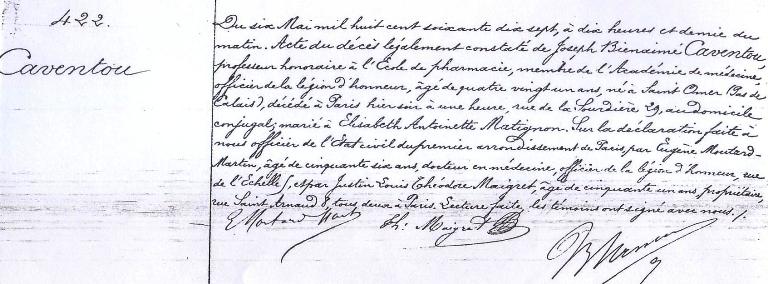 422.
Caventou
Du six Mai mil huit cent soixante dix sept, à dix heures et demie du
matin. Acte du décès légalement constaté de Joseph Bienaimé Caventou,
professeur honoraire à l'École de pharmacie, membre de l'Académie de médecine,
officier de la légion d'honneur, âgé de quatre vingt un ans, né à Saint Omer (Pas de
Calais), décédé à Paris hier soir à une heure, rue de la Sourdière 29, au domicile
conjugal; marié à Elisabeth Antoinette Matignon. Sur la déclaration faite à
nous officier de l'Etat civil du premier arrondissement de Paris, par Eugène Moutard-
Martin, âgé de cinquante six ans, docteur en médecine, officier de la légion d'honneur, rue
de l'Echelle, et par Justin Louis Théodore Maigret, âgé de cinquante un ans, propriétaire,
rue Saint Arnaud 8, tous deux à Paris. Lecture faite, les témoins ont signé avec nous./.
E Moutard Mart Th: Maigret